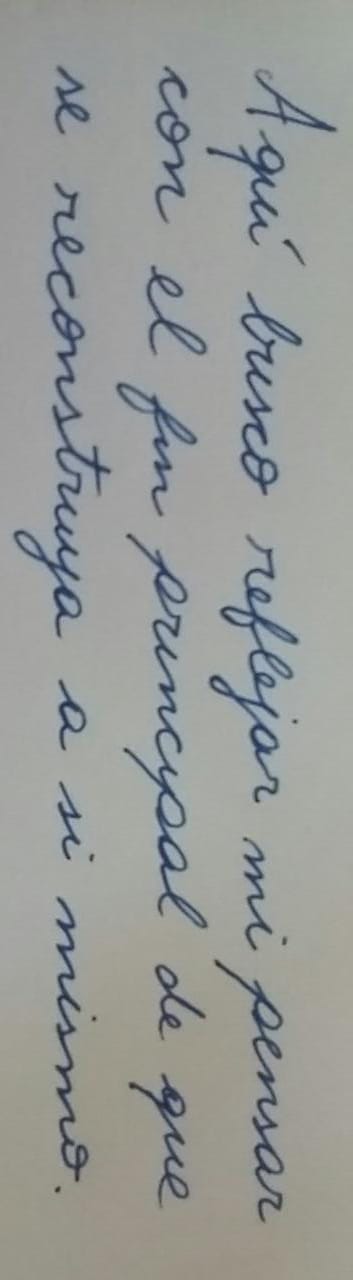 Aquí busco reflejar mi pensar
con el fin principal de que
se reconstruya a si mismo.